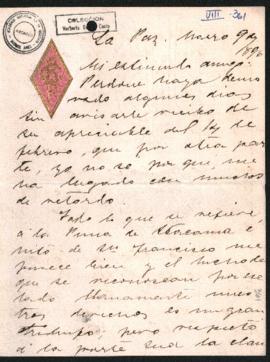 COLECCION
VIII - 361
La Paz, Marzo 9 de
1896
Mi estimado amigo:
Perdone haya demo
rado algunos dias
sin avisarle recibo de
su apreciable del 14 de
febrero, que por otra par
te, yo no se por que, me
ha llegado con mucho
retardo.
Todo lo que se refiere
á la Puna de Atacama e
hito de San francisco me
parece bien y el hecho de
que se reconozcan por ese
lado llanamente nues
tros derechos es un gran
triunfo, pero respecto
á la parte Sud la clau